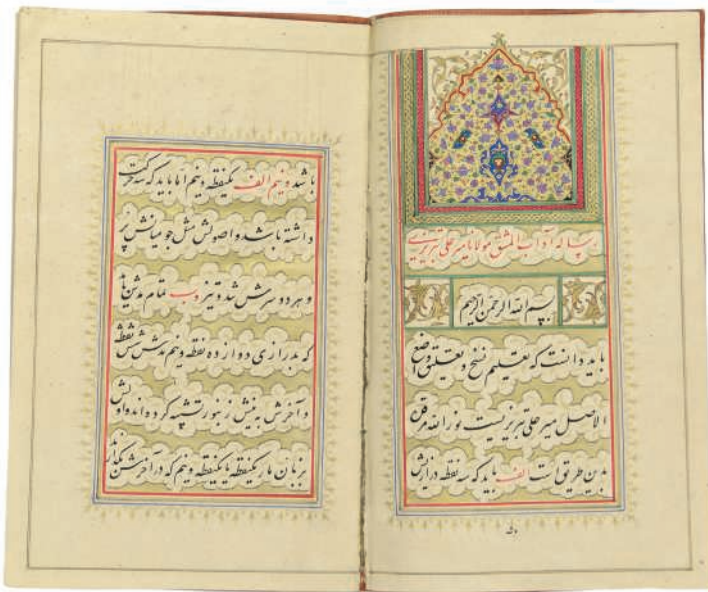 رساله آداب المشق مولانا میر علی تبریزی
بسم الله الرحمن الرحیم
باید دانست که تعلیم نسخ و تعلیق واضع
الاصل میر علی تبریزیست نور الله مرقده
بدین طریق است الف باید که سه نقطه درازیش
باشد و نیم الف یکنقطه و نیم اما باید که سه حرکت
داشته باشد و اصولش مثل جو میانش پر
و هر دو سرش تند و تیز ب تمام مدش باید
که بدرازی دوازده نقطه و نیم مدش شش نقطه
و آخرش به نیش زنبور تشبیه کرده اند و اولش
بر زبان مار یکنقطه یا یکنقطه و نیم که در آخرش